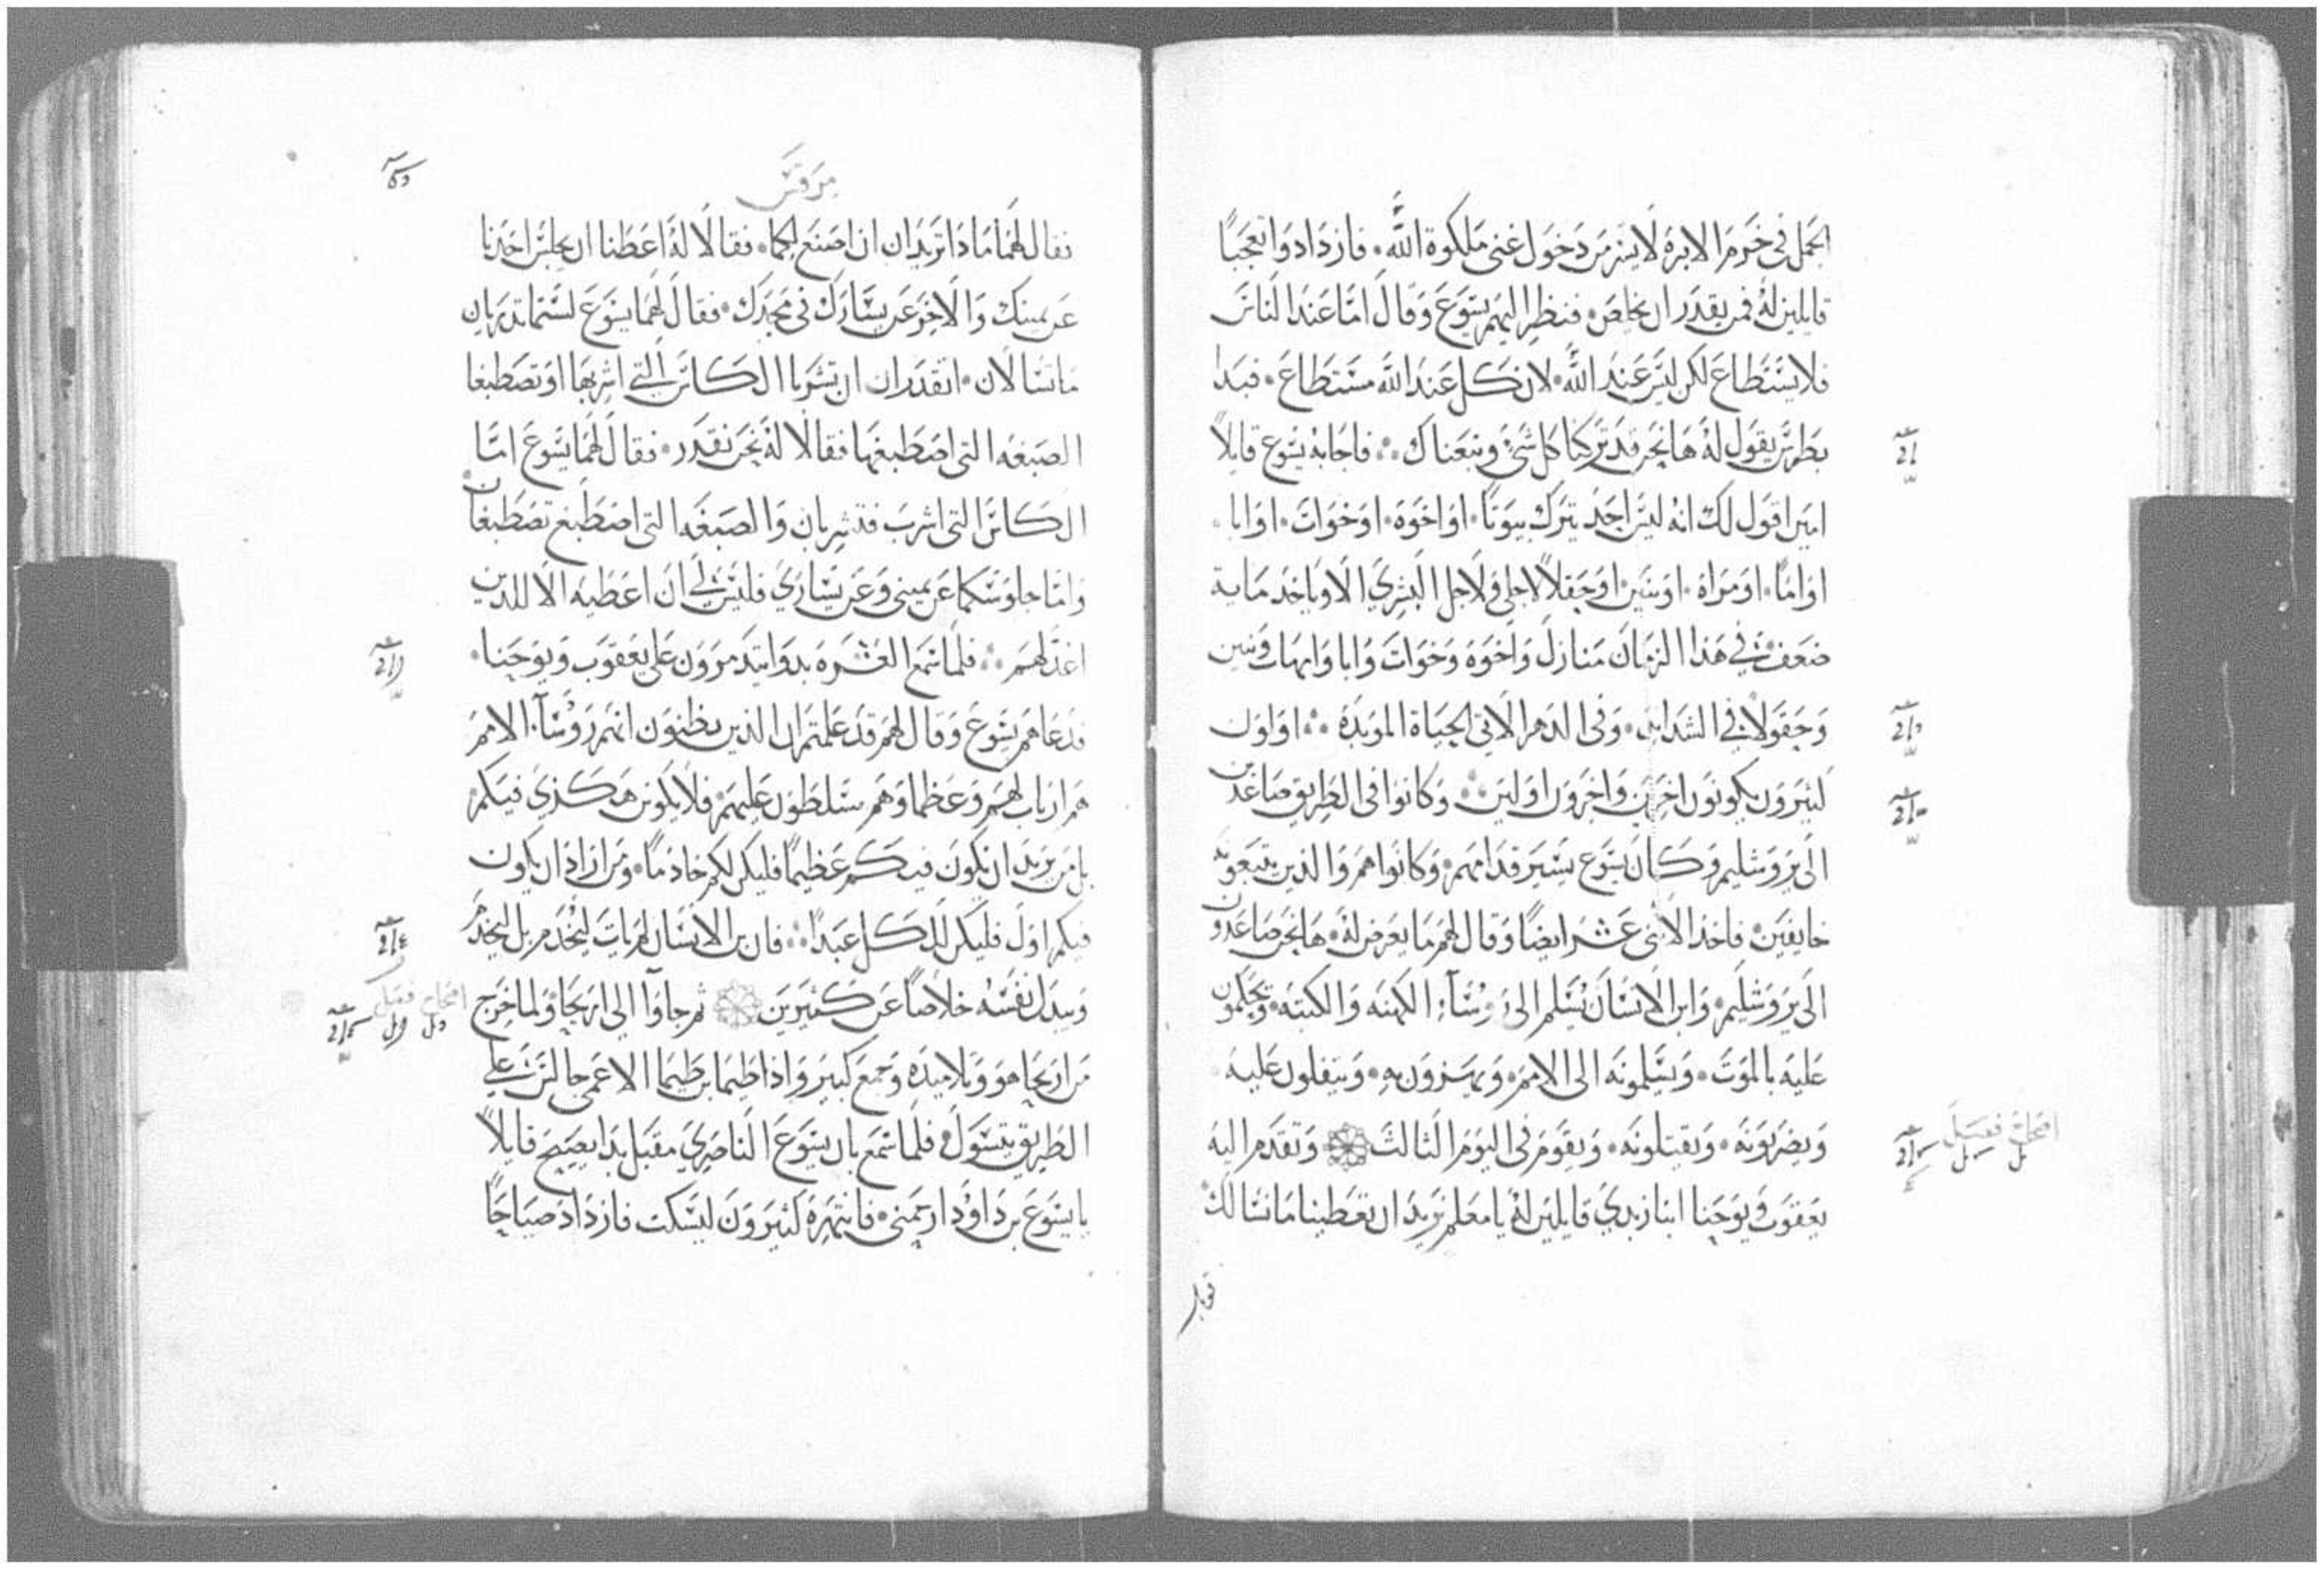 الجمل في خرم الابره لايسر من دخول غني ملكوة الله. فازدادوا تعجبًا
قايلين له فمن يقدر ان يخلص. فنظر اليهم يسوع وقال اما عند الناس
فلا يستطاع لكن ليس عند الله. لان كل عند الله مستطاع. فبدا
بطرس يقول له ها نحن قد تركنا كل شي وتبعناك. فاجابه يسوع قايلاً
امين اقول لك انه ليس احد يترك بيوتًا. او اخوة. او خوات. او ابا.
او امًا. او مراة. او بنين. او حقلاً لاجلي ولاجل البشري الا وياخذ ماية
ضعف في هذا الزمان منازل واخوة وخوات وابا وامهات وبنين
وحقولاً في الشدايد. وفي الدهر الاتي الحياة الموبدة. اولون
كثيرون يكونون اخرين واخرون اولين. وكانوا في الطريق صاعدين
الى يروشليم وكان يسوع يسير قدامهم. وكانوا هم والذين يتبعونه
خايفين. فاخذ الاثني عشر ايضًا وقال لهم ما يعرض له. ها نحن صاعدون
الى يروشليم. وابن الانسان يسلم الى روسآء الكهنه والكتبه. ويحكمون
عليه بالموت. ويسلمونه الى الامم. ويهزون به. ويتفلون عليه
ويضربونه. ويقتلونه. ويقوم في اليوم الثالث وتقدم اليه
يعقوب ويوحنا ابنا زبدي قايلين له يا معلم نريد ان تعطينا ما نسالك
مرقس
فقال لهما ماذا تريدان ان اصنع لكما. فقالا له اعطنا ان يجلس احدنا
عن يمينك والاخر عن يسارك في مجدك. فقال لهما يسوع لستما تدريان
ما تسالان. اتقدران ان تشربا الكاس التي اشربها او تصطبغا
الصبغه التي اصطبغها فقالا له نحن نقدر. فقال لهما يسوع اما
الكاس التي اشرب فتشربان والصبغه التي اصطبغ تصطبغان
واما جلوسكما عن يميني وعن يساري فليس لي ان اعطيه الا للذين
اعد لهم. فلما سمع العشره بدوا يتدمرون على يعقوب ويوحنا.
فدعاهم يسوع وقال لهم قد علمتم ان الذين يظنون انهم روسآء الامم
هم ارباب لهم وعظماوهم يتسلطون عليهم. فلا يكون هكذي فيكم
بل من يريد ان يكون فيكم عظيمًا فليكن لكم خادمًا. ومن اراد ان يكون
فيكم اول فليكن للكل عبدًا. فان بن الانسان لم يات ليخدم بل ليخدم
ويبدل نفسه خلاصًا عن كثيرين ثم جاوا الى اريحا. ولما خرج
من اريحا هو وتلاميذه وجمع كبير واذا طيما بن طيما الاعمي جالس على
الطريق يتسول فلما سمع بان يسوع الناصري مقبل بدا يصيح قايلاً
يا يسوع بن داود ارحمني. فانتهره كثيرون ليسكت فازداد صياحًا